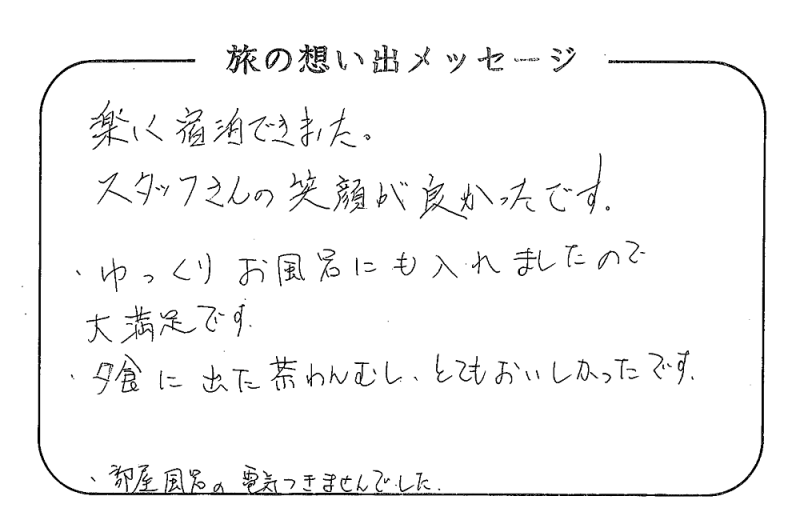 旅の想い出メッセージ
楽しく宿泊できました。
スタッフさんの笑顔が良かったです。
・ゆっくりお風呂にも入れましたので
大満足です。
・夕食に出た茶わんむし、とてもおいしかったです。
・部屋風呂の電気つきませんでした.